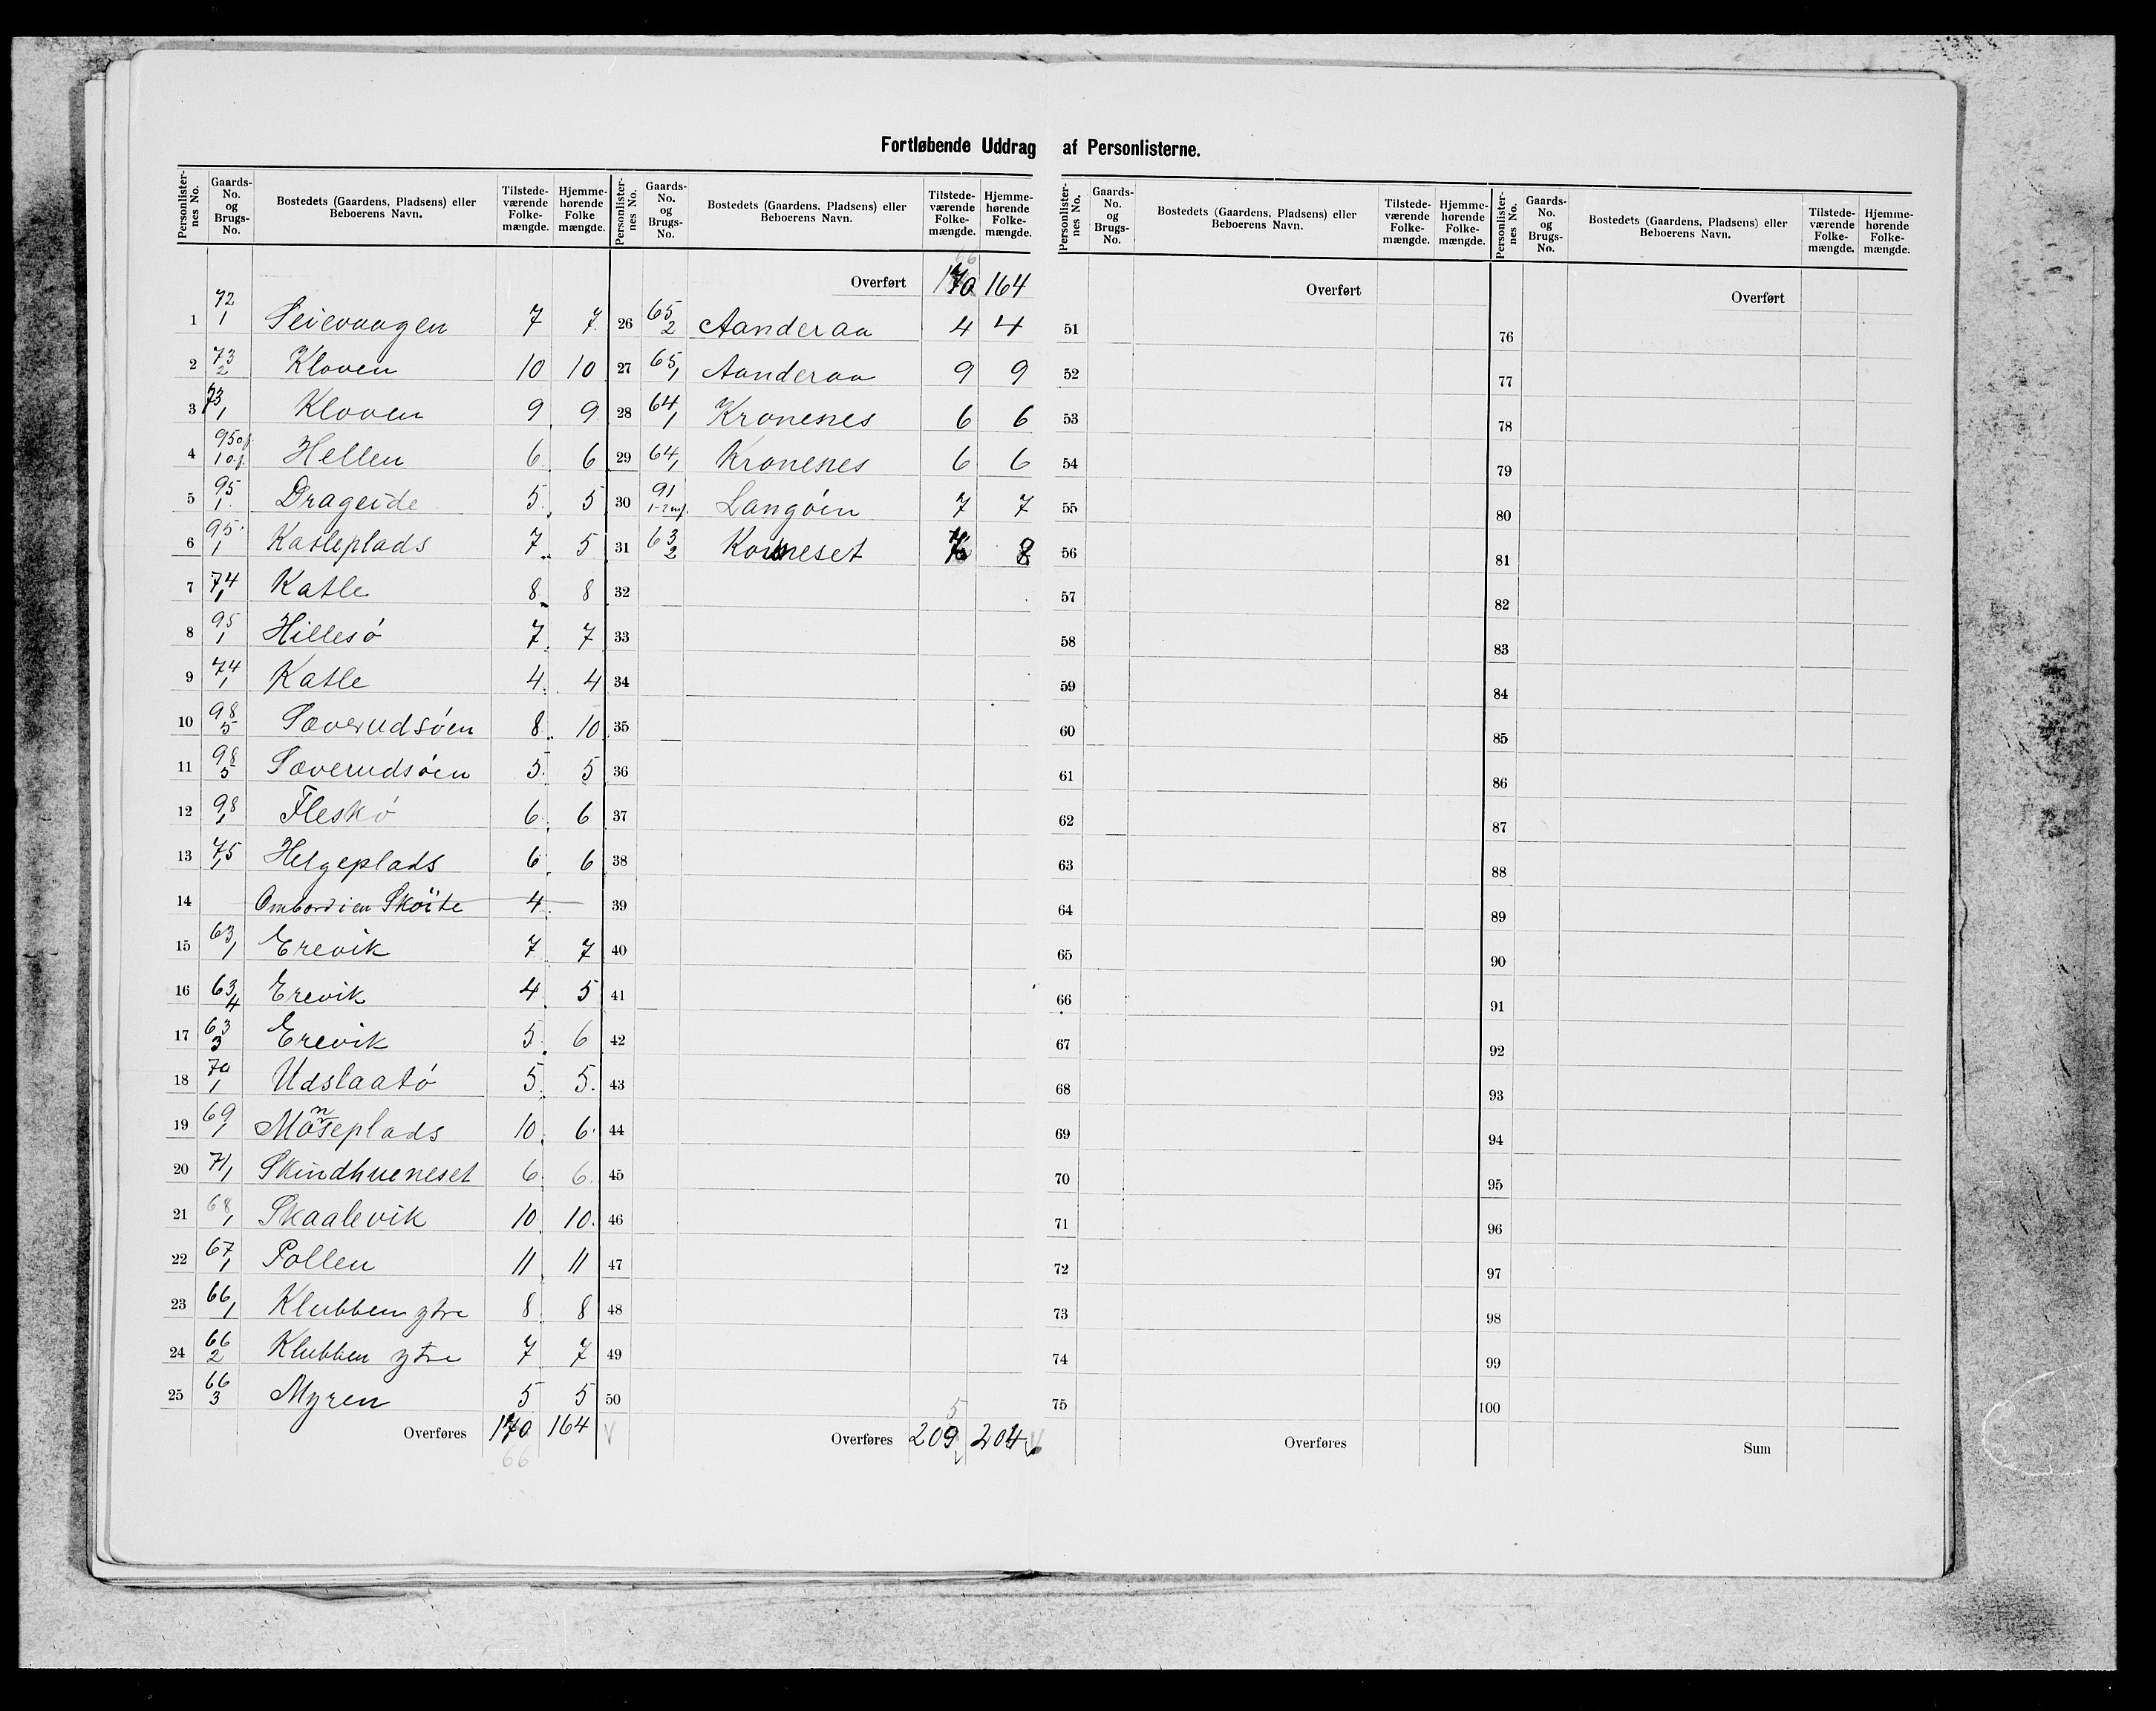 Fortløbende Uddrag af Personlisterne.
Personlister-nes No. Gaards-No. og Brugs-No. Bostedets (Gaardens, Pladsens) eller Beboerens Navn. Tilstede-værende Folke-mængde. Hjemme-hørende Folke mængde.
1 72/1 Seievaagen 7 7
2 73/2 Kloven 10 10
3 73/1 Kloven 9 9
4 95 o.f. 1 o.f. Hellen 6 6
5 95/1 Drageide 5 5
6 95/1 Katleplads 7 5
7 74/1 Katle 8 8
8 95/1 Hillesö 7 7
9 74/1 Katle 4 4
10 98/5 Sæverudsöen 8 10
11 98/5 Sæverudsöen 5 5
12 98/1 Fleskö 6 6
13 75/1 Helgeplads 6 6
14 Ombord i en Skoite 4 —
15 63/1 Erevik 7 7
16 63/4 Erevik 4 5
17 63/3 Erevik 5 6
18 70/1 Udslaatö 5 5
19 69/1 Mönseplads 10 6
20 71/1 Skindhueneset 6 6
21 68/1 Skaalevik 10 10
22 67/1 Pollen 11 11
23 66/1 Klubben ytre 8 8
24 66/2 Klubben ytre 7 7
25 66/3 Myren 5 5
Overføres 170 164
66
Personlister-nes No. Gaards-No. og Brugs-No. Bostedets (Gaardens, Pladsens) eller Beboerens Navn. Tilstede-værende Folke-mængde. Hjemme-hørende Folke-mængde.
66
Overført 170 164
26 65/2 Aanderaa 4 4
27 65/1 Aanderaa 9 9
28 64/1 Kronenes 6 6
29 64/1 Kronenes 6 6
30 91 Langöen 7 7
31 63/2 8
32
33
34
35
36
37
38
39
40
41
42
43
44
45
46
47
48
49
50
5
Overføres 209 204
Personlister-nes No. Gaards-No. og Brugs-No. Bostedets (Gaardens, Pladsens) eller Beboerens Navn. Tilstede-værende Folke-mængde. Hjemme-hørende Folke-mængde.
Overført
51
52
53
54
55
56
57
58
59
60
61
62
63
64
65
66
67
68
69
70
71
72
73
74
75
Overføres
Personlister-nes No. Gaards-No. og Brugs-No. Bostedets (Gaardens, Pladsens) eller Beboerens Navn. Tilstede-værende Folke-mængde. Hjemme-hørende Folke-mængde.
Overført
76
77
78
79
80
81
82
83
84
85
86
87
88
89
90
91
92
93
94
95
96
97
98
99
100
Sum